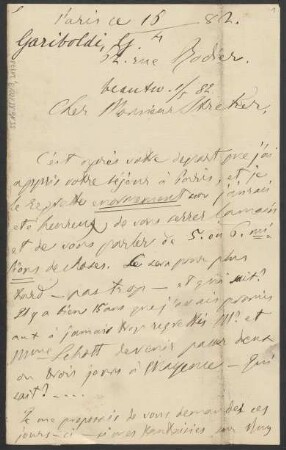 Paris ce 16 / 4 82.
Gariboldi, G.
52. rue Rodier.
beantw. 1/5 82
Cher Monsieur Strecker,
C'est après votre départ que j'ai
appris votre séjour à Paris, et je
le regrette énormément car j'aurais
été heureux de vous serrer la main
et de vous parler de 5. ou 6. mil
lions de choses. Ce sera pour plus
tard — pas trop — et qui sait?
Il y a bien 15 ans que j'avais promis
aux à jamais trop regrettés Mr. et
Mme. Schott de venir passer deux
ou trois jours à Mayence — Qui
sait? ....
Je me proposais de vous demander ces
jours-ci —